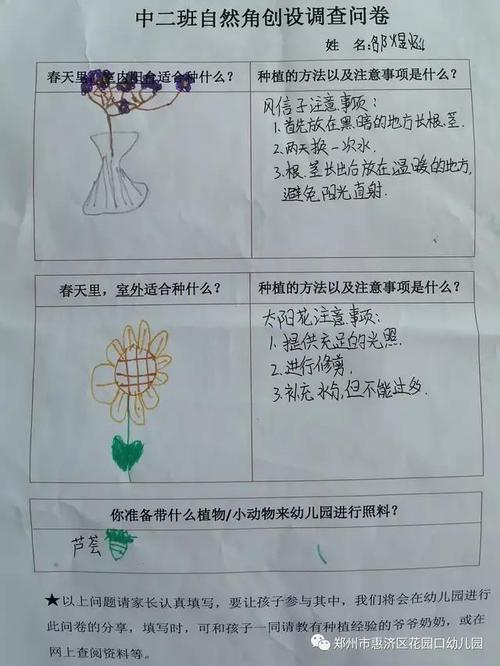 中二班自然角创设调查问卷
姓 名:
春天里，室内阳台适合种什么？
种植的方法以及注意事项是什么？
风信子注意事项：
1.首先放在黑暗的地方长根、茎.
2.两天换一次水.
3.根、茎长出后放在温暖的地方,
避免阳光直射.
春天里，室外适合种什么？
种植的方法以及注意事项是什么？
太阳花注意事项：
1.提供充足的光照
2.进行修剪
3.补充水分,但不能过多
你准备带什么植物/小动物来幼儿园进行照料？
芦荟
★以上问题请家长认真填写，要让孩子参与其中，我们将会在幼儿园进行
此问卷的分享，填写时，可和孩子一同请教有种植经验的爷爷奶奶，或在
网上查阅资料等。
郑州市惠济区花园口幼儿园